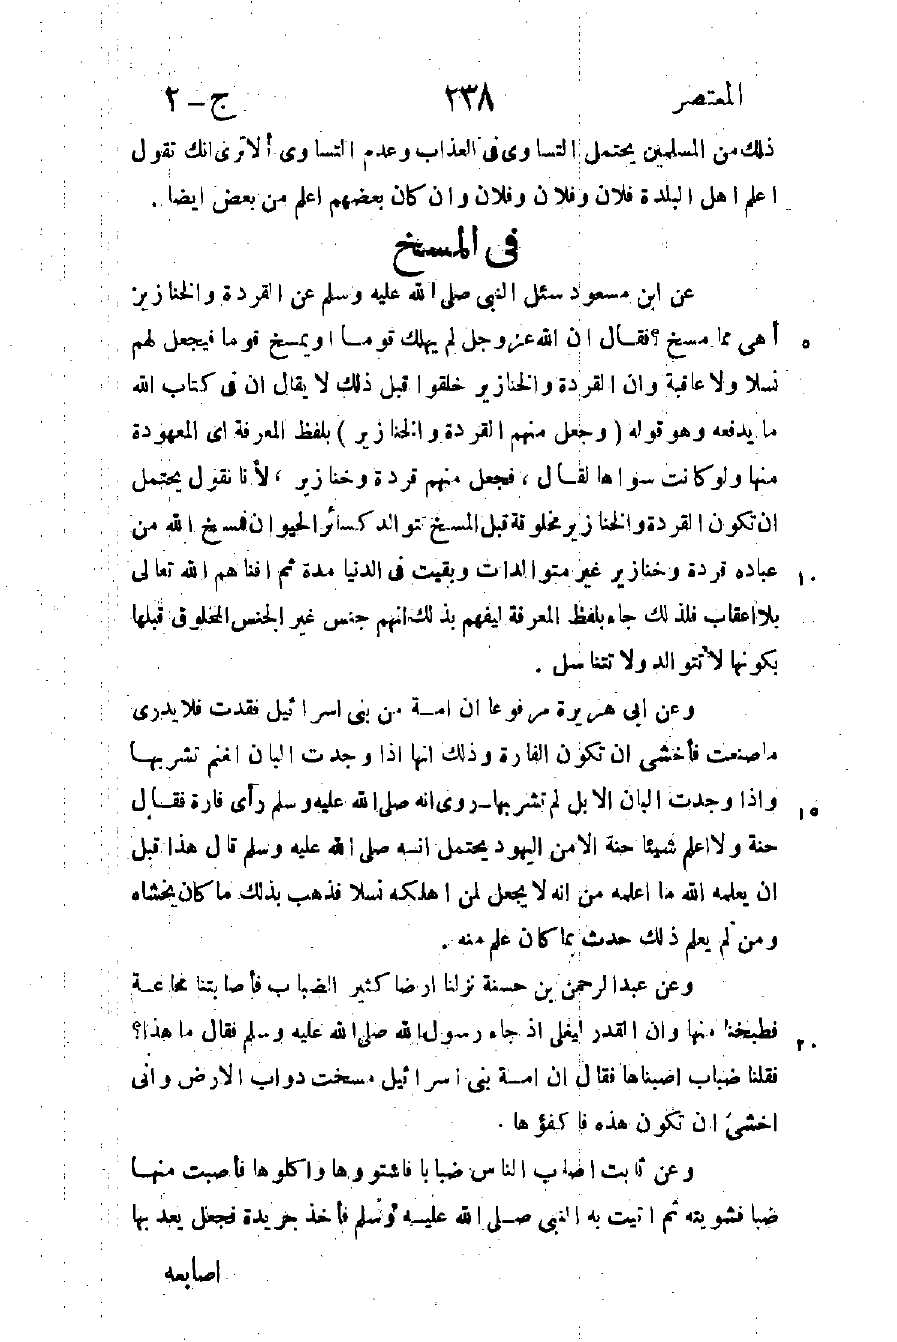 المعتصر ٢٣٨ ج - ٢
ذلك من المسلمين يحتمل التساوى فى العذاب وعدم التساوى ألا ترى انك تقول
اعلم اهل البلدة فلان وفلان وفلان وان كان بعضهم اعلم من بعض ايضا .
فى المسخ
عن ابن مسعود سئل النبى صلى الله عليه وسلم عن القردة والخنازير
أهى مما مسخ ؟ فقال ان الله عز وجل لم يهلك قوما او يمسخ قوما فيجعل لهم ٥
نسلا ولا عاقبة وان القردة والخنازير خلقوا قبل ذلك لا يقال ان فى كتاب الله
ما يدفعه وهو قوله ( وجعل منهم القردة والخنازير ) بلفظ المعرفة اى المعهودة
منها ولو كانت سواها لقال ، فجعل منهم قردة وخنازير ، لأنا نقول يحتمل
ان تكون القردة والخنازير مخلوقة قبل المسخ تتوالد كسائر الحيوان فمسخ الله من
عباده قردة وخنازير غير متوالدات وبقيت فى الدنيا مدة ثم افناهم الله تعالى ١٠
بلا اعقاب فلذلك جاء بلفظ المعرفة ليفهم بذلك انهم جنس غير الجنس المخلوق قبلها
بكونها لا تتوالد ولا تتناسل .
وعن ابى هريرة مرفوعا ان امة من بنى اسرائيل فقدت فلا يدرى
ما صنعت فأخشى ان تكون الفارة وذلك انها اذا وجدت البان الغنم تشربها
واذا وجدت البان الابل لم تشربها - روى انه صلى الله عليه وسلم رأى فارة فقال ١٥
حنة ولا اعلم شيئا حنة الا من اليهود يحتمل انه صلى الله عليه وسلم قال هذا قبل
ان يعلمه الله ما اعلمه من انه لا يجعل لمن اهلكه نسلا فذهب بذلك ما كان يخشاه
ومن لم يعلم ذلك حدث بما كان علم منه .
وعن عبد الرحمن بن حسنة نزلنا ارضا كثير الضباب فأصابتنا مجاعة
فطبخنا منها وان القدر ليغلى اذ جاء رسول الله صلى الله عليه وسلم فقال ما هذا؟ ٢٠
فقلنا ضباب اصبناها فقال ان امة بنى اسرائيل مسخت دواب الارض وانى
اخشى ان تكون هذه فاكفؤها .
وعن ثابت اصاب الناس ضبابا فاشتووها واكلوها فأصبت منها
ضبا فشويته ثم اتيت به النبى صلى الله عليه وسلم فأخذ جريدة فجعل يعد بها
اصابعه